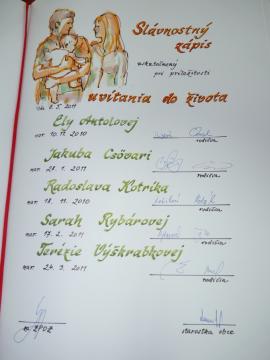 Slávnostný
zápis
uskutočnený
pri príležitosti
dňa 8. 5. 2011
uvítania do života
Ely Antolovej
nar. 10. 11. 2010
rodičia
Jakuba Csövari
nar. 28. 1. 2011
rodičia
Radoslava Kotrika
nar. 18. 11. 2010
rodičia
Sarah Rybárovej
nar. 17. 2. 2011
rodičia
Terézie Výškrabkovej
nar. 24. 3. 2011
rodičia
za ZPOZ
starostka obce